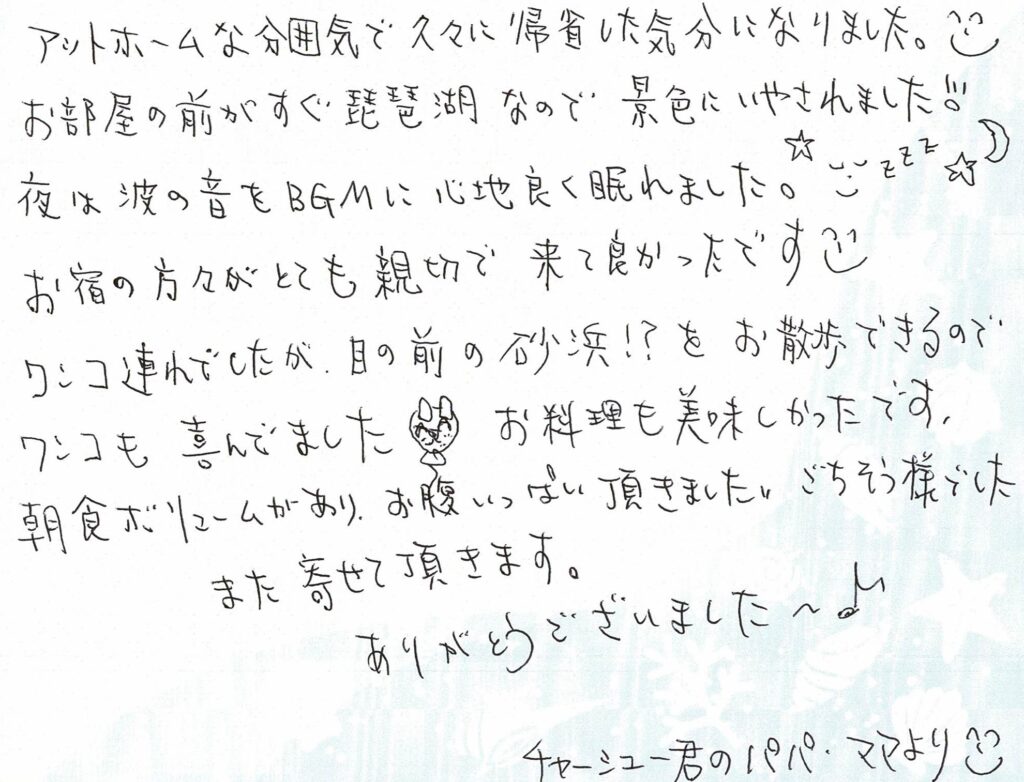 アットホームな雰囲気で久々に帰省した気分になりました。
お部屋の前がすぐ琵琶湖なので景色にいやされました!!
夜は波の音をBGMに心地良く眠れました。zzz
お宿の方々がとても親切で来て良かったです
ワンコ連れでしたが、目の前の砂浜!?をお散歩できるので
ワンコも喜んでました お料理も美味しかったです、
朝食ボリュームがあり、お腹いっぱい頂きました!! ごちそう様でした
また寄せて頂きます。
ありがとうございました〜♪
チャーシュー君のパパ・ママより